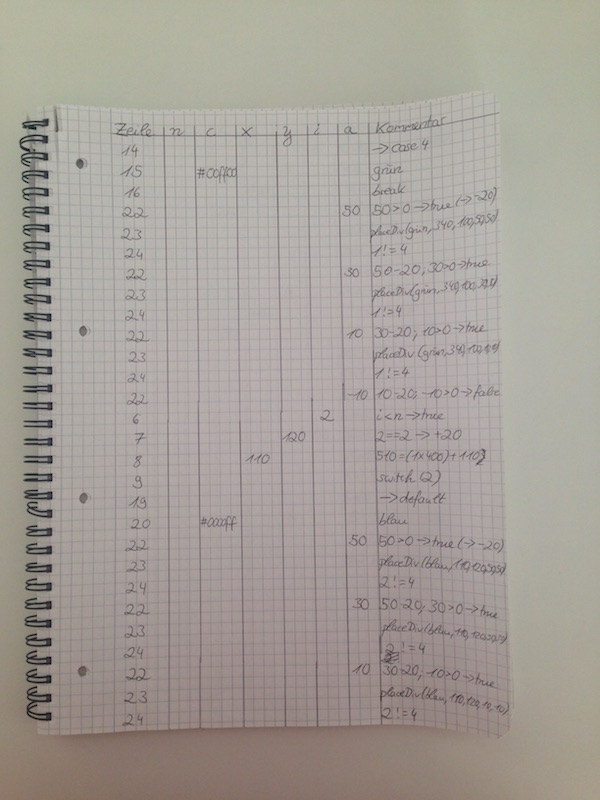 Zeile n c x y i a Kommentar
14 → case 4
15 #00ff00 grün
16 break
22 50 50>0→true (→-20)
23 placeDiv(grün, 340, 100, 50, 50)
24 1!=4
22 30 50-20, 30>0→true
23 placeDiv(grün, 340, 100,
24 1!=4
22 10 30-20, 10>0→true
23 placeDiv(grün, 340, 100,
24 1!=4
22 -10 10-20, -10>0→false
6 2 i<n→true
7 120 2==2→ +20
8 110 510=(1x400)+110
9 switch(2)
19 → default
20 #0000ff blau
22 50 50>0→true (→-20)
23 placeDiv(blau, 110, 120, 50, 50)
24 2!=4
22 30 50-20, 30>0→true
23 placeDiv(blau, 110, 120,
24 2!=4
22 10 30-20, 10>0→true
23 placeDiv(blau, 110, 120, 10, 10)
24 2!=4